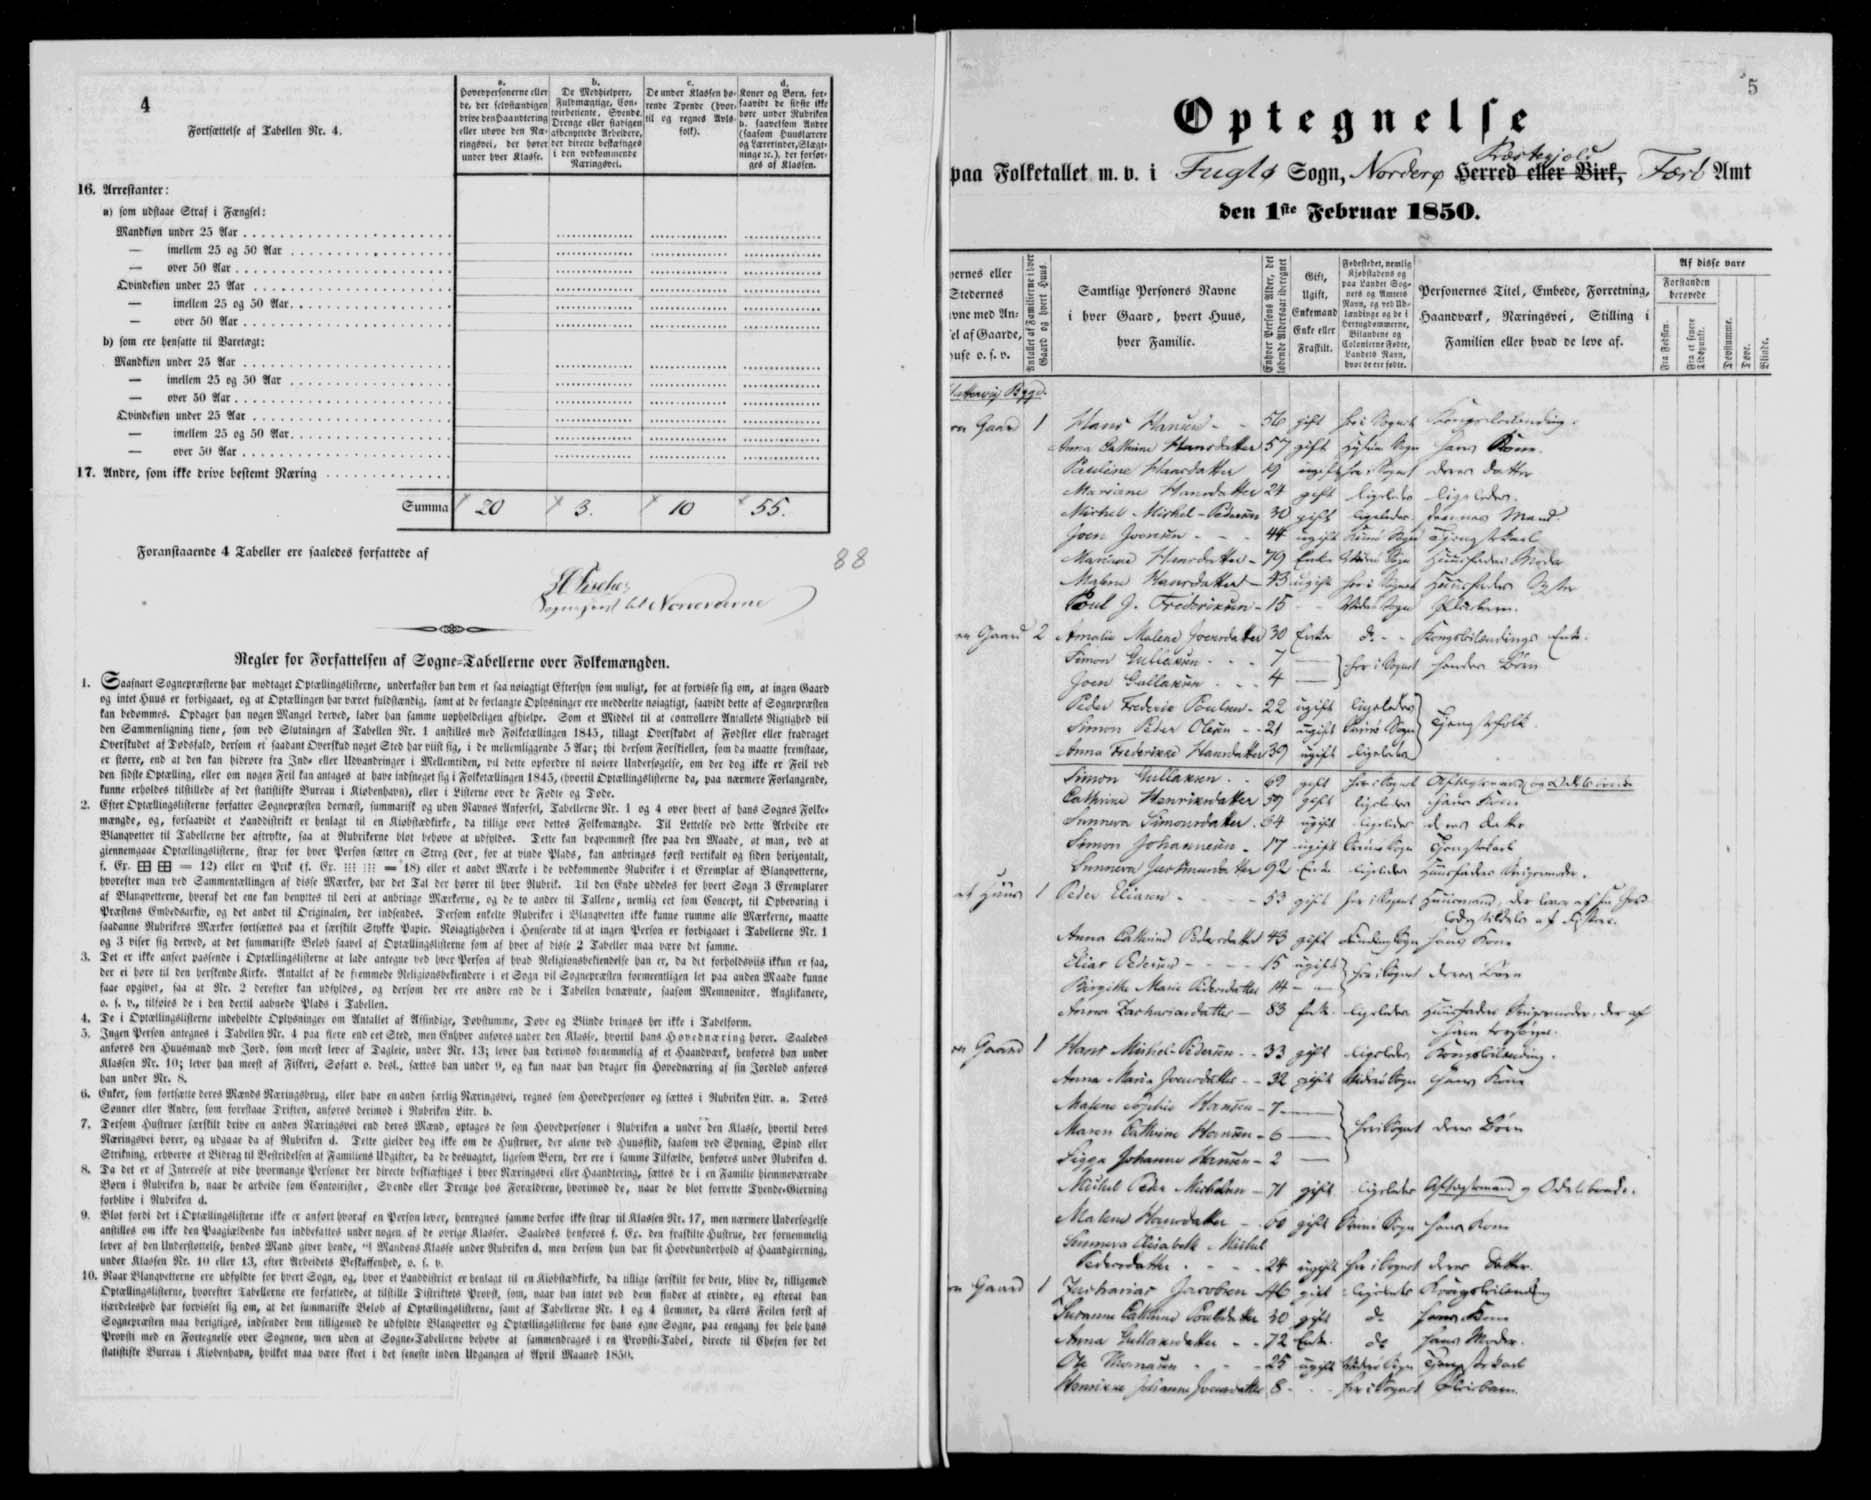 4
Fortsættelse af Tabellen Nr. 4.
a.
Hovedpersonerne eller de, der selvstændigen drive den Haandtering eller udøve den Næringsvei, der hører under hver Klasse.
b.
De Medhjelpere, Fuldmægtige, Contoirbetiente, Svende, Drenge eller stadigen afbenyttede Arbeidere, der directe beskæftiges i den vedkommende Næringsvei.
c.
De under Klassen hørende Tyende (hvortil og regnes Avlsfolk).
d.
Koner og Børn, forsaavidt de sidste ikke høre under Rubriken b. saavelsom Andre (saasom Huuslærere og Lærerinder, Slægtninge ꝛc.), der forsørges af Klassen.
16. Arrestanter:
a) som udstaae Straf i Fængsel:
Mandkiøn under 25 Aar
— imellem 25 og 50 Aar
— over 50 Aar
Qvindekiøn under 25 Aar
— imellem 25 og 50 Aar
— over 50 Aar
b) som ere hensatte til Varetægt:
Mandkiøn under 25 Aar
— imellem 25 og 50 Aar
— over 50 Aar
Qvindekiøn under 25 Aar
— imellem 25 og 50 Aar
— over 50 Aar
17. Andre, som ikke drive bestemt Næring
Summa 20 3. 10 55.
Foranstaaende 4 Tabeller ere saaledes forfattede af
88
Sognepræst til Norderøerne
Regler for Forfattelsen af Sogne-Tabellerne over Folkemængden.
1. Saasnart Sognepræsterne har modtaget Optællingslisterne, underkaster han dem et saa nøiagtigt Eftersyn som muligt, for at forvisse sig om, at ingen Gaard
og intet Huus er forbigaaet, og at Optællingen har været fuldstændig, samt at de forlangte Oplysninger ere meddeelte nøiagtigt, saavidt dette af Sognepræsten
kan bedømmes. Opdager han nogen Mangel derved, lader han samme uopholdeligen afhielpe. Som et Middel til at controllere Antallets Rigtighed vil
den Sammenligning tiene, som ved Slutningen af Tabellen Nr. 1 anstilles med Folketællingen 1845, tillagt Overskudet af Fødsler eller fradraget
Overskudet af Dødsfald, dersom et saadant Overskud noget Sted har viist sig, i de mellemliggende 5 Aar; thi dersom Forskiellen, som da maatte fremstaae,
er større, end at den kan hidrøre fra Ind- eller Udvandringer i Mellemtiden, vil dette opfordre til nøiere Undersøgelse, om der dog ikke er Feil ved
den sidste Optælling, eller om nogen Feil kan antages at have indsneget sig i Folketællingen 1845, (hvortil Optællingslisterne da, paa nærmere Forlangende,
kunne erholdes tilstillede af det statistiske Bureau i Kiøbenhavn), eller i Listerne over de Fødte og Døde.
2. Efter Optællingslisterne forfatter Sognepræsten dernæst, summarisk og uden Navnes Anførsel, Tabellerne Nr. 1 og 4 over hvert af hans Sognes Folke-
mængde, og, forsaavidt et Landdistrikt er henlagt til en Kiøbstadkirke, da tillige over dettes Folkemængde. Til Lettelse ved dette Arbeide ere
Blanqvetter til Tabellerne her aftrykte, saa at Rubrikerne blot behøve at udfyldes. Dette kan beqvemmest skee paa den Maade, at man, ved at
giennemgaae Optællingslisterne, strax for hver Person sætter en Streg (der, for at vinde Plads, kan anbringes først vertikalt og siden horizontalt,
f. Ex. ⊞ ⊞ = 12) eller en Prik (f. Ex. ⁝⁝⁝ ⁝⁝⁝ = 18) eller et andet Mærke i de vedkommende Rubriker i et Exemplar af Blanqvetterne,
hvorefter man ved Sammentællingen af disse Mærker, har det Tal der hører til hver Rubrik. Til den Ende uddeles for hvert Sogn 3 Exemplarer
af Blanqvetterne, hvoraf det ene kan benyttes til deri at anbringe Mærkerne, og de to andre til Tallene, nemlig eet som Concept, til Opbevaring i
Præstens Embedsarkiv, og det andet til Originalen, der indsendes. Dersom enkelte Rubriker i Blanqvetten ikke kunne rumme alle Mærkerne, maatte
saadanne Rubrikers Mærker fortsættes paa et særskilt Stykke Papir. Nøiagtigheden i Henseende til at ingen Person er forbigaaet i Tabellerne Nr. 1
og 3 viser sig derved, at det summariske Beløb saavel af Optællingslisterne som af hver af disse 2 Tabeller maa være det samme.
3. Det er ikke anseet passende i Optællingslisterne at lade antegne ved hver Person af hvad Religionsbekiendelse han er, da det forholdsviis ikkun er faa,
der ei høre til den herskende Kirke. Antallet af de fremmede Religionsbekiendere i et Sogn vil Sognepræsten formeentligen let paa anden Maade kunne
faae opgivet, saa at Nr. 2 derefter kan udfyldes, og dersom der ere andre end de i Tabellen benævnte, saasom Memnoniter, Anglikanere,
o. s. v., tilføies de i den dertil aabnede Plads i Tabellen.
4. De i Optællingslisterne indeholdte Oplysninger om Antallet af Afsindige, Døvstumme, Døve og Blinde bringes her ikke i Tabelform.
5. Ingen Person antegnes i Tabellen Nr. 4 paa flere end eet Sted, men Enhver anføres under den Klasse, hvortil hans Hovednæring hører. Saaledes
anføres den Huusmand med Jord, som meest lever af Dagleie, under Nr. 13; lever han derimod fornemmelig af et Haandværk, henføres han under
Klassen Nr. 10; lever han meest af Fiskeri, Søfart o. desl., sættes han under 9, og kun naar han drager sin Hovednæring af sin Jordlod anføres
han under Nr. 8.
6. Enker, som fortsætte deres Mænds Næringsbrug, eller have en anden særlig Næringsvei, regnes som Hovedpersoner og sættes i Rubriken Litr. a. Deres
Sønner eller Andre, som forestaae Driften, anføres derimod i Rubriken Litr. b.
7. Dersom Hustruer særskilt drive en anden Næringsvei end deres Mænd, optages de som Hovedpersoner i Rubriken a under den Klasse, hvortil deres
Næringsvei hører, og udgaae da af Rubriken d. Dette gielder dog ikke om de Hustruer, der alene ved Huusflid, saasom ved Syening, Spind eller
Strikning, erhverve et Bidrag til Bestridelsen af Familiens Udgifter, da de desuagtet, ligesom Børn, der ere i samme Tilfælde, henføres under Rubriken d.
8. Da det er af Interesse at vide hvormange Personer der directe beskiæftiges i hver Næringsvei eller Haandtering, sættes de i en Familie hiemmeværende
Børn i Rubriken b, naar de arbeide som Contoirister, Svende eller Drenge hos Forældrene, hvorimod de, naar de blot forrette Tyende-Gierning
forblive i Rubriken d.
9. Blot fordi det i Optællingslisterne ikke er anført hvoraf en Person lever, henregnes samme derfor ikke strax til Klassen Nr. 17, men nærmere Undersøgelse
anstilles om ikke den Paagiældende kan indbefattes under nogen af de øvrige Klasser. Saaledes henføres f. Ex. den fraskilte Hustrue, der fornemmelig
lever af den Understøttelse, hendes Mand giver hende, til Mandens Klasse under Rubriken d, men dersom hun har sit Hovedunderhold af Haandgierning,
under Klassen Nr. 10 eller 13, efter Arbeidets Beskaffenhed, o. s. v.
10. Naar Blanqvetterne ere udfyldte for hvert Sogn, og, hvor et Landdistrict er henlagt til en Kiøbstadkirke, da tillige særskilt for dette, blive de, tilligemed
Optællingslisterne, hvorefter Tabellerne ere forfattede, at tilstille Distriktets Provst, som, naar han intet ved dem finder at erindre, og efterat han
isærdeleshed har forvisset sig om, at det summariske Beløb af Optællingslisterne, samt af Tabellerne Nr. 1 og 4 stemmer, da ellers Feilen først af
Sognepræsten maa berigtiges, indsender dem tilligemed de udfyldte Blanqvetter og Optællingslisterne for hans egne Sogne, paa eengang for hele hans
Provsti med en Fortegnelse over Sognene, men uden at Sogne-Tabellerne behøve at sammendrages i en Provsti-Tabel, directe til Chefen for det
statistiske Bureau i Kiøbenhavn, hvilket maa være skeet i det seneste inden Udgangen af April Maaned 1850.
5
Optegnelse
Præstegjeld
paa Folketallet m. v. i Fuglø Sogn, Norderø Herred eller Birk, Færø Amt
den 1ste Februar 1850.
Antallet af Familierne i hver Gaard og hvert Huus.
Samtlige Personers Navne i hver Gaard, hvert Huus, hver Familie.
Enhver Persons Alder, det løbende Aldersaar iberegnet
Gift, Ugift, Enkemand Enke eller Fraskilt.
Fødestedet, nemlig Kjøbstadens og paa Landet Sognets og Amtets Navn, og ved Udlændinge og de i Hertugdømmerne, Bilandene og Colonierne Fødte, Landets Navn, hvor de ere fødte.
Personernes Titel, Embede, Forretning, Haandværk, Næringsvei, Stilling i Familien eller hvad de leve af.
Af disse vare
Forstanden berøvede
Fra Fødslen.
Fra et senere Tidspunkt.
Døvstumme.
Døve.
Blinde.
Hattervig Bygd.
en Gaard 1 Hans Hansen 56 gift her i Sognet Kongsbilænding.
Anna Cathrine Hansdatter 57 gift Sogn hans Kone.
Pauline Hansdatter 19 ugift her i Sognet deres Datter
Mariane Hansdatter 24 gift ligeledes ligeledes.
Michel Michel-Pedersen 30 gift ligeledes. dennes Mand.
Joen Joensen 44 ugift Sogn Tjenestekarl
Mariane Hansdatter 79 Enke Sogn Huusfaders Moder
Malene Hansdatter 43 ugift her i Sognet Huusfaders Syster
Poul J. Frederiksen 15 Viderø Sogn Pleiebarn.
en Gaard 2 Amalie Malene Joensdatter 30 Enke do Kongsbilændings Enke.
Simon Gullaksen 7 her i Sognet hendes Børn
Joen Gullaksen 4
Peder Frederic Poulsen 22 ugift ligeledes Tjenestefolk.
Simon Peder Olesen 21 ugift Sogn
Anna Frederikke Hansdatter 39 ugift ligeledes
Simon Gullaksen 69 gift her i Sognet Aftægtsmand og Odelsbonde
Cathrine Henriksdatter 59 gift ligeledes hans Kone
Sunneva Simonsdatter 64 ugift ligeledes deres Datter
Simon Johannesen 17 ugift Sogn Tjenestekarl
Sunneva Justinusdatter 92 Enke ligeledes Huusfaders Svigermoder.
et Huus 1 Peder Eliasen 53 gift her i Sognet Huusmand, der lever af sin Jord-
lod og tildels af Fiskeri.
Anna Cathrine Pedersdatter 43 gift Sogn hans Kone
Elias Pedersen 15 ugift her i Sognet deres Børn
Birgithe Marie Pedersdatter 14
Anna Zachariasdatter 83 Enke ligeledes Huusfaders Svigermoder, der af
ham forsørges.
en Gaard 1 Hans Michel-Pedersen 33 gift ligeledes Kongsbilænding.
Anna Maria Joensdatter 32 gift Viderø Sogn hans Kone
Malene Sophie Hansen 7 her i Sognet deres Børn
Maren Cathrine Hansen 6
Sigga Johanne Hansen 2
Michel Peder Michelsen 71 gift ligeledes Aftægtsmand og Odelsbonde.
Malene Hansdatter 60 gift Sogn hans Kone
Sunneva Elisabeth Michel
Pedersdatter 24 ugift her i Sognet deres Datter.
en Gaard 1 Zacharias Jacobsen 46 gift ligeledes Kongsbilænding
Susanne Cathrine Poulsdatter 30 gift do hans Kone
Anna Gullaksdatter 72 Enke do hans Moder.
Ole Thomasen 25 ugift Viderø Sogn Tjenestekarl
Henrikke Johanne Joensdatter 8 her i Sognet Pleiebarn.